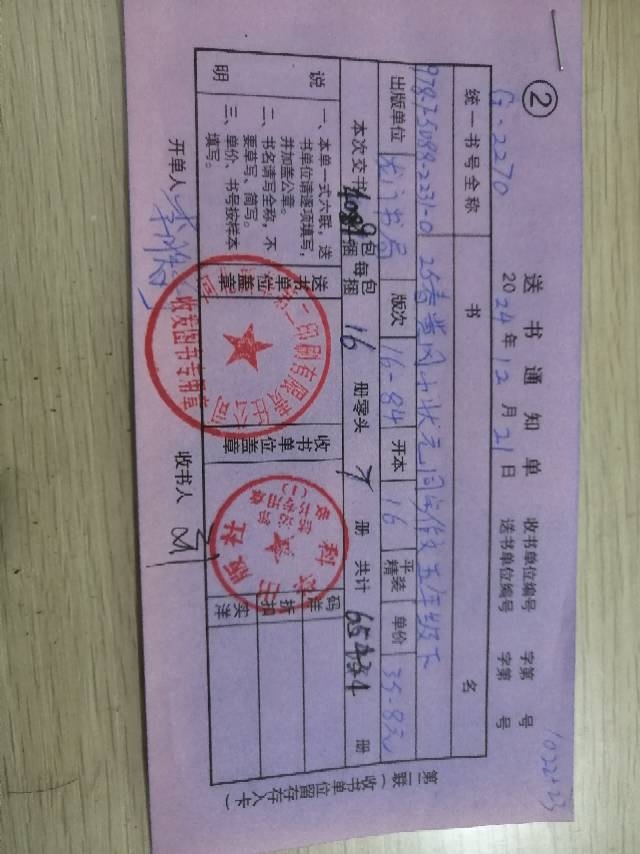 ②
G-2270
送书通知单
2024年12月21日
收书单位编号 字第 号
送书单位编号 字第 号
1022+23
统一书号全称
书 名
978-7-5088-2231-0
25春黄冈小状元同步作文五年级下
出版单位 龙门书局 版次 16-84 开本 16 平装 精 单价 35.8元
本次交书 4089 包捆 每包捆 16 册零头 7 册 共计 册
说明
一、本单一式六联，送书单位请逐项填写，并加盖公章。
二、书名请写全称，不要草写、简写。
三、单价、书号按样本填写。
送书单位盖章
收书单位盖章
码洋
折扣
实洋
二印刷有限责任公司
收发图书专用章
开单人
收书人
第二联（收书单位留存存入卡）